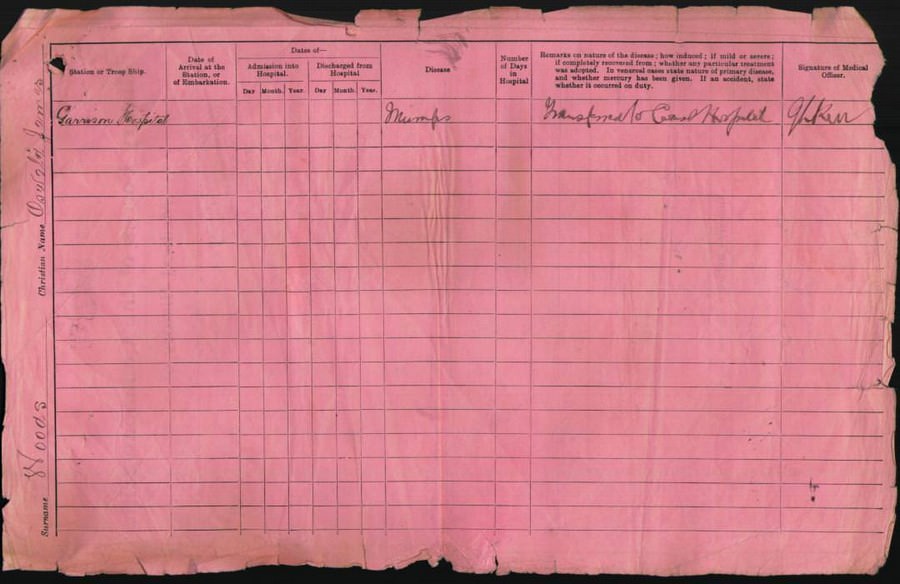 Station or Troop Ship.
Date of
Arrival at the
Station, or
of Embarkation.
Dates of—
Admission into
Hospital.
Discharged from
Hospital
Day Month. Year. Day Month. Year.
Disease
Number
of Days
in
Hospital
Remarks on nature of the disease; how induced; if mild or severe;
if completely recovered from; whether any particular treatment
was adopted. In venereal cases state nature of primary disease,
and whether mercury has been given. If an accident, state
whether it occurred on duty.
Signature of Medical
Officer.
Garrison Hospital Mumps Transferred to Hospital Kerr
Christian Name James
Surname Woods